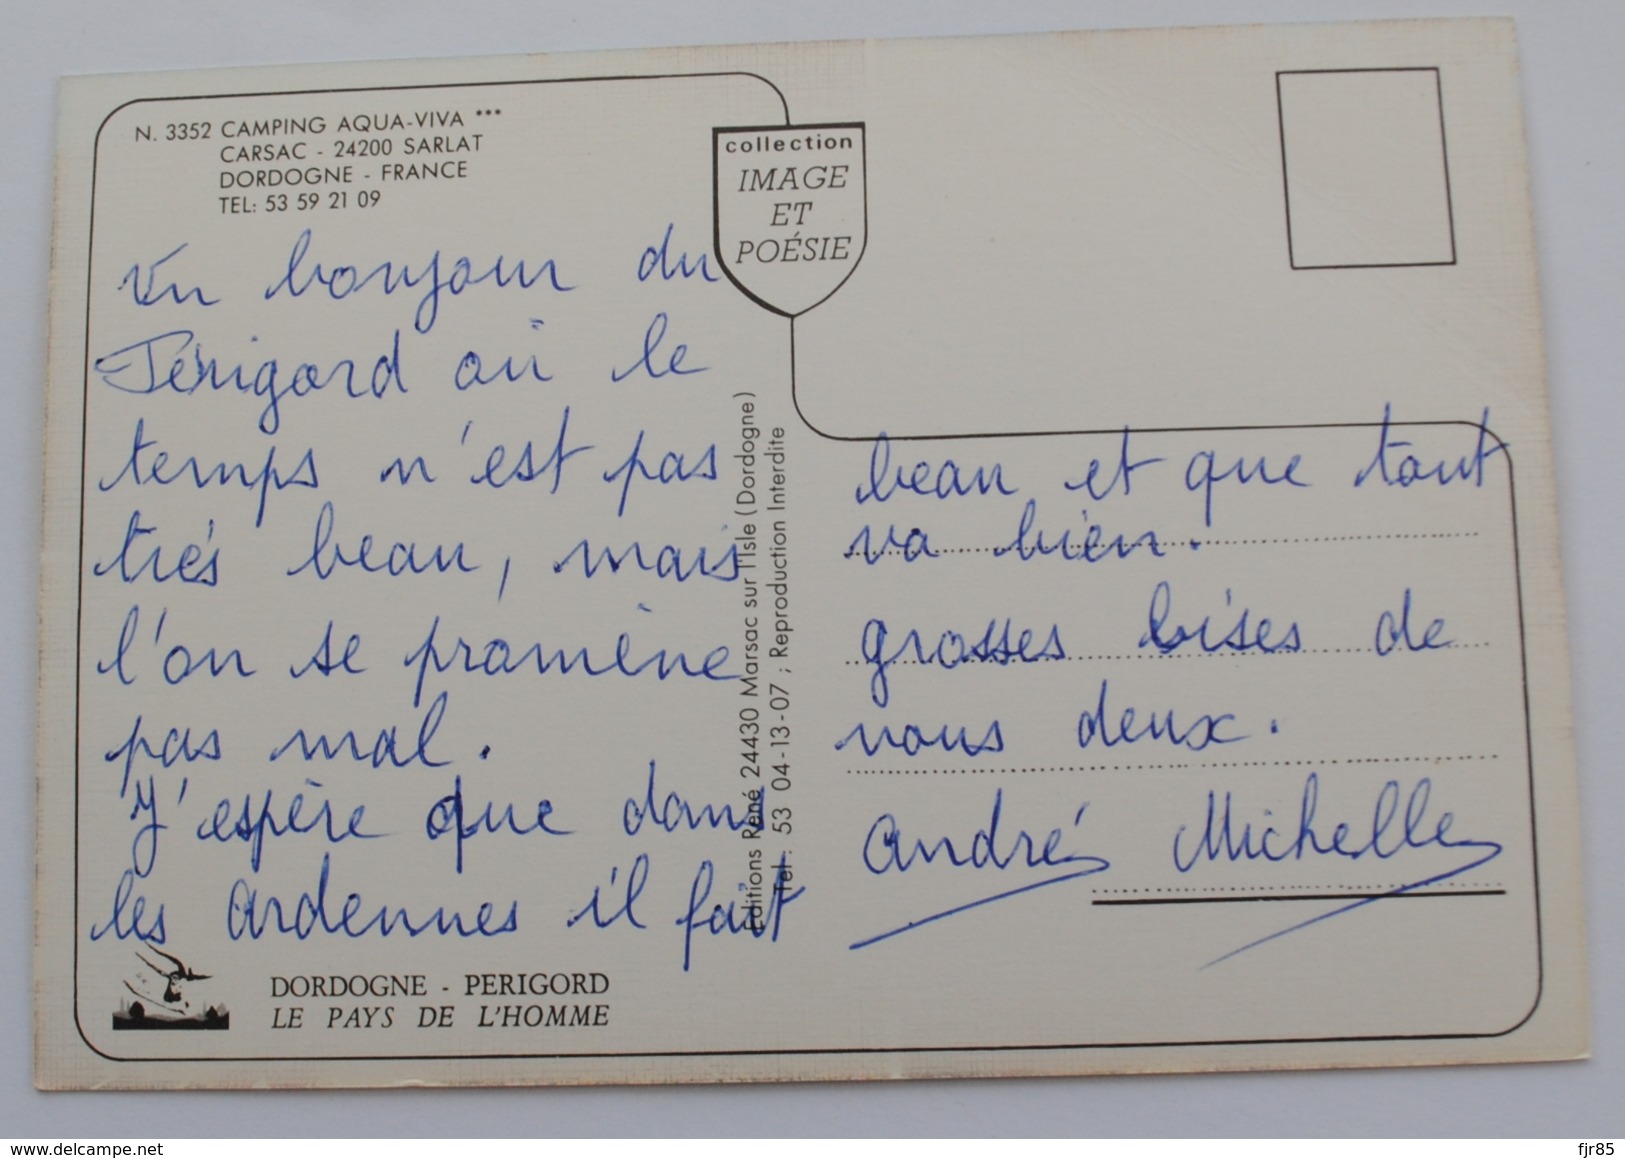 N. 3352 CAMPING AQUA-VIVA ***
CARSAC - 24200 SARLAT
DORDOGNE - FRANCE
TEL: 53 59 21 09
collection
IMAGE
ET
POÉSIE
Un bonjour du
Périgord où le
temps n'est pas
très beau, mais
l'on se promène
pas mal.
J'espère que dans
les ardennes il fait
beau et que tout
va bien.
grosses bises de
nous deux.
andré Michelle
Editions René 24430 Marsac sur l'Isle (Dordogne)
Tel : 53 04-13-07 ; Reproduction Interdite
DORDOGNE - PERIGORD
LE PAYS DE L'HOMME
www.delcampe.net
fjr85